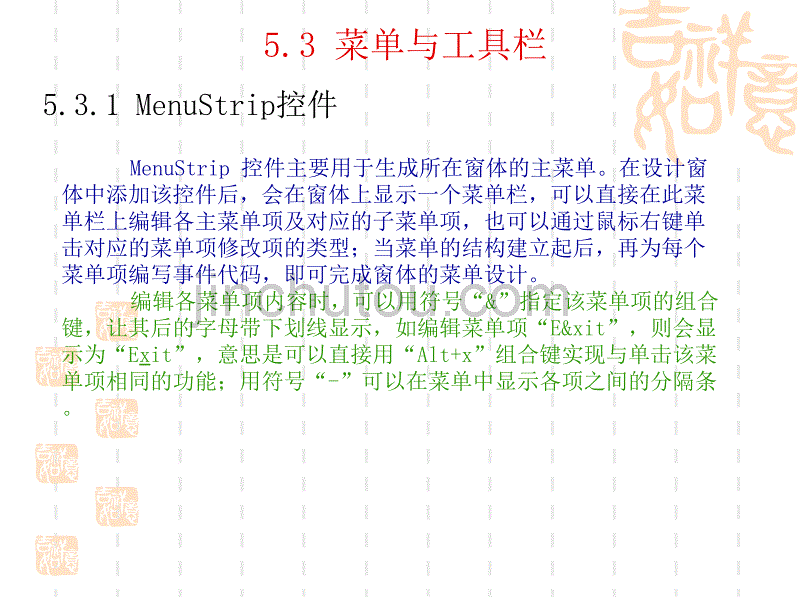 5.3 菜单与工具栏
吉祥
如意
5.3.1 MenuStrip控件
MenuStrip 控件主要用于生成所在窗体的主菜单。在设计窗
体中添加该控件后，会在窗体上显示一个菜单栏，可以直接在此菜
单栏上编辑各主菜单项及对应的子菜单项，也可以通过鼠标右键单
击对应的菜单项修改项的类型；当菜单的结构建立起后，再为每个
菜单项编写事件代码，即可完成窗体的菜单设计。
jinchutou.com
编辑各菜单项内容时，可以用符号“&”指定该菜单项的组合
键，让其后的字母带下划线显示，如编辑菜单项“E&xit”，则会显
示为“Exit”，意思是可以直接用“Alt+x”组合键实现与单击该菜
单项相同的功能；用符号“-”可以在菜单中显示各项之间的分隔条
。